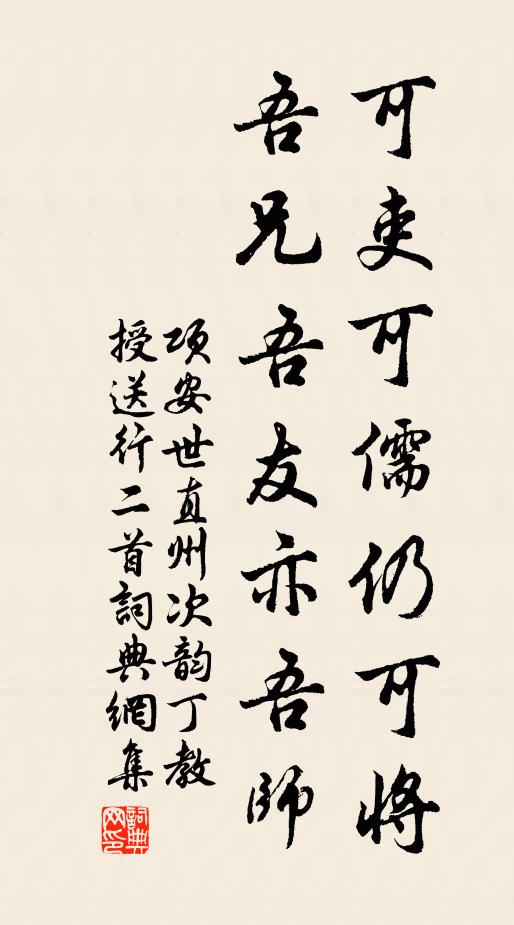 可吏可儒仍可將
吾兄吾友亦吾師
項安世直州次韵丁教
授送行二首詞典網集
詞典网印